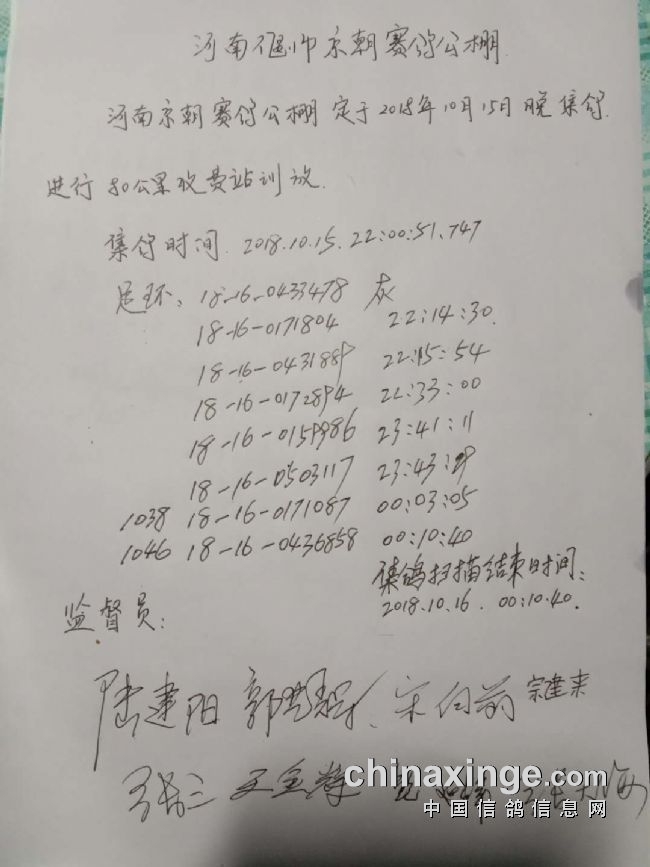 河南偃师京朝赛鸽公棚
河南京朝赛鸽公棚定于2018年10月15日晚集鸽
进行80公里收费站训放.
集鸽时间.2018.10.15.22:00:51.747
足环:18-16-0433478 灰
18-16-0171804 22:14:30.
18-16-0431889 22:15:54
18-16-0172894 22:33:00
18-16-0159986 23:41:11
18-16-0503117 23:43:29
1038 18-16-0171087 00:03:05
1046 18-16-0436858 00:10:40
集鸽扫描结束时间:
2018.10.16.00:10:40.
监督员:
陆建阳 郭 宋向前 宗建来
张三 王全
chinaxinge.com
中国信鸽信息网